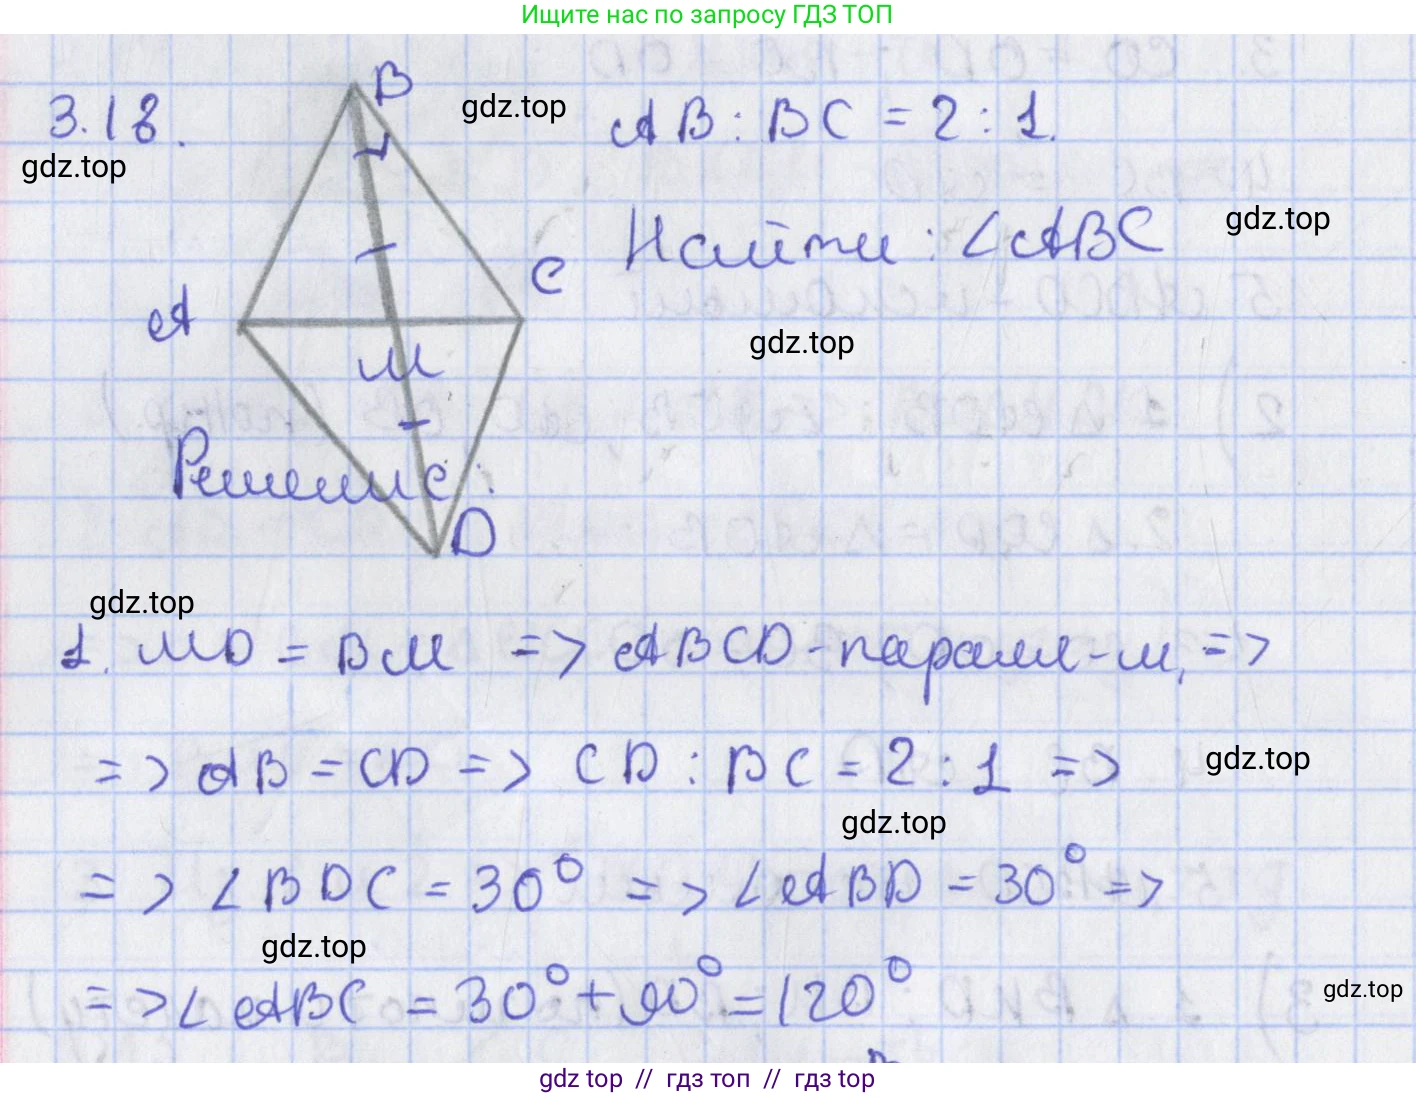 Ищите нас по запросу ГДЗ ТОП
3.18.
B
gdz.top
AB : BC = 2 : 1.
gdz.top
Найти : ∠ABC
gdz.top
C
A
gdz.top
M
Решение:
D
gdz.top
1. MD = BM => ABCD - паралл-м, =>
=> AB = CD => CD : BC = 2 : 1 =>
gdz.top
gdz.top
=> ∠BDC = 30° => ∠ABD = 30° =>
gdz.top
=> ∠ABC = 30° + 90° = 120°
gdz.top
gdz top // гдз топ // гдз top